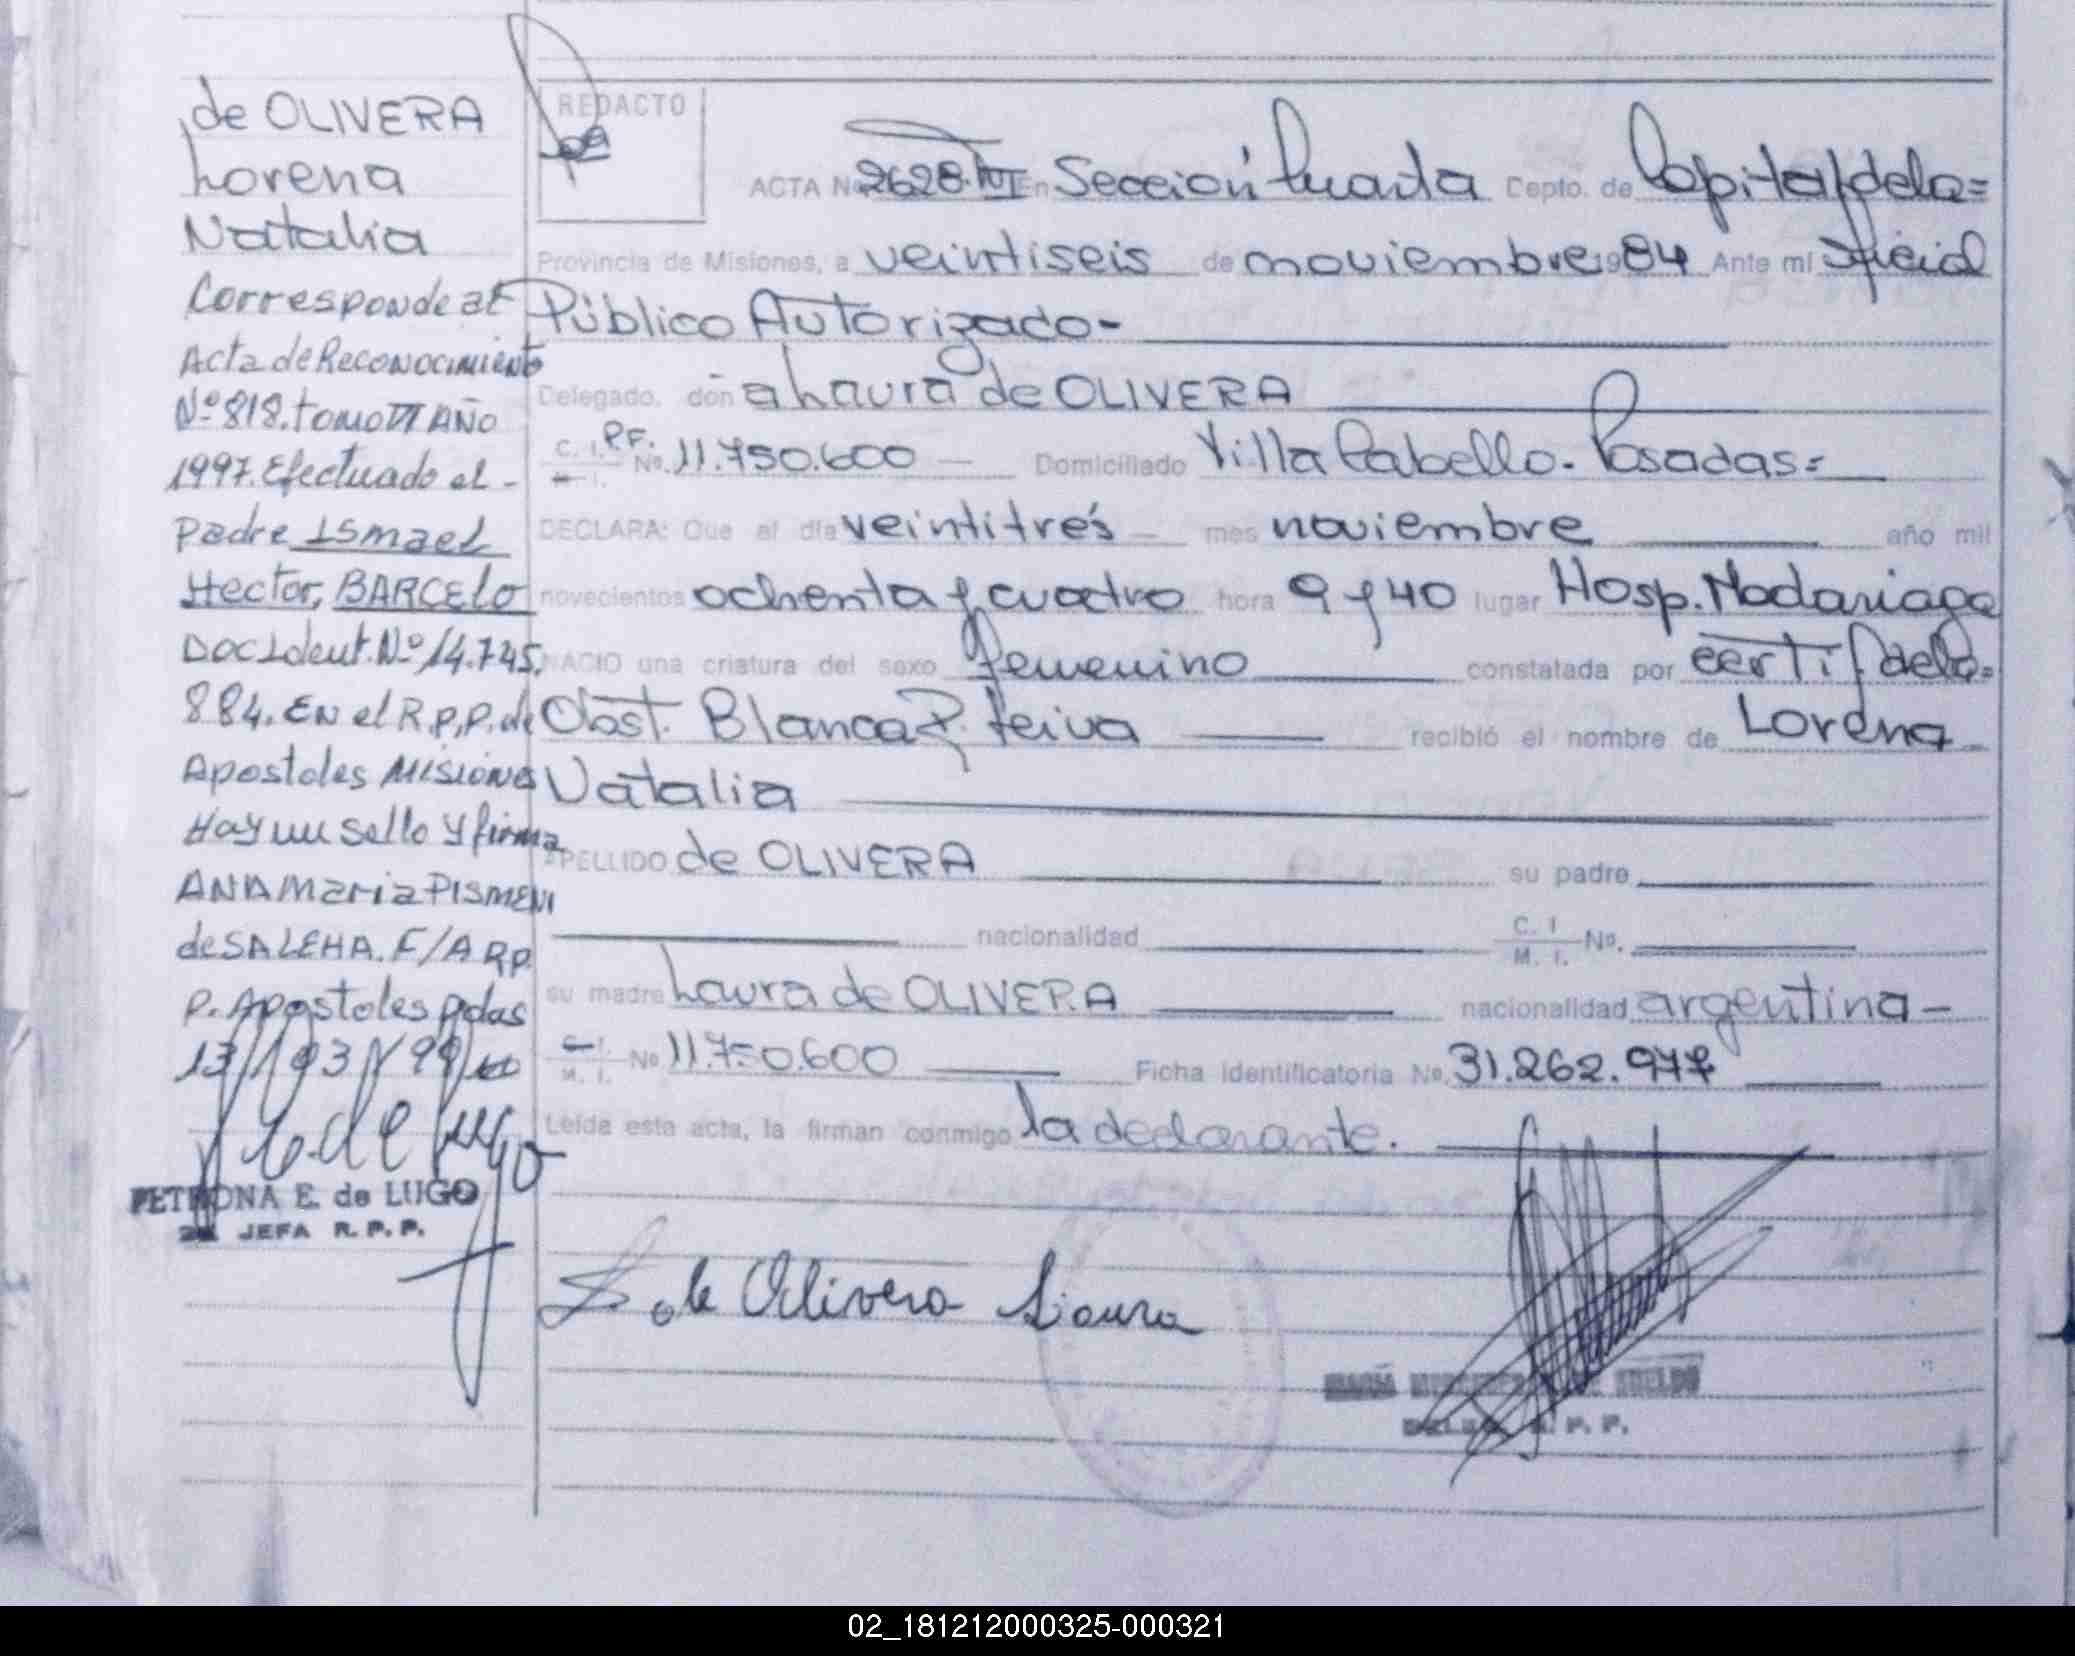 de OLIVERA
Lorena
Natalia
Corresponde al
Acta de Reconocimiento
Nº 818. tomo VI AÑO
1997. Efectuado el -
Padre Ismael
Hector, BARCELO
Doc Ident. Nº 14.745.
884. EN el R.P.P. de
Apostoles Misiones
Hay un sello y firma
ANA Maria PISMENI
de SALEHA. F/A R.P.
P. Apostoles Pdas
13/03/99
PETRONA E. de LUGO
JEFA R. P. P.
REDACTO
ACTA Nº 2628. En Sección Cuarta Depto. de Capital de la =
Provincia de Misiones, a veintiseis de noviembre 1984 Ante mi Oficial
Público Autorizado -
Delegado, don a Laura de OLIVERA
C. I. PF. No. 11.750.600 — Domiciliado Villa Cabello. Posadas =
DECLARA: Que al día veintitrés mes noviembre año mil
novecientos ochenta y cuatro hora 9 y 40 lugar Hosp. Madariaga
NACIO una criatura del sexo femenino constatada por certif de la =
Obst. Blanca P. Leiva recibió el nombre de Lorena
Natalia
APELLIDO de OLIVERA su padre
nacionalidad C. I. M. I. No.
su madre Laura de OLIVERA nacionalidad argentina -
C. I. M. I. No 11.750.600 Ficha Identificatoria No. 31.262.977
Leída esta acta, la firman conmigo la declarante.
de Olivera Laura
MARIA
P. P.
02_181212000325-000321